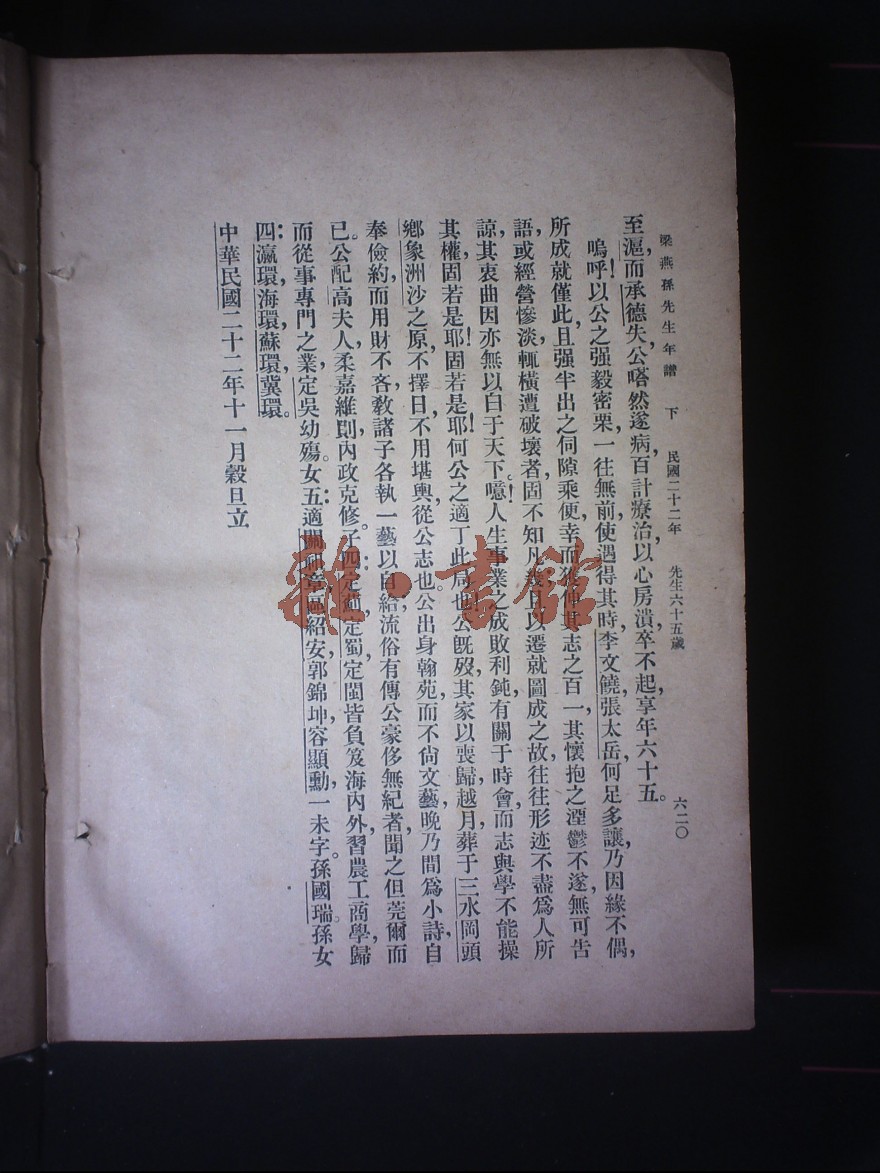 梁燕孫先生年譜　下　民國二十二年　先生六十五歲
六二〇
至滬，而承德失，公嗒然遂病，百計療治，以心房潰，卒不起，享年六十五。
嗚呼！以公之强毅密栗，一往無前，使遇得其時，李文饒，張太岳，何足多讓，乃因緣不偶，
所成就僅此，且强半出之伺隙乘便，幸而獲伸其志之百一，其懷抱之湮鬱不遂，無可告
語，或經營慘淡，輒橫遭破壞者，固不知凡幾，且以遷就圖成之故，往往形迹不盡爲人所
諒，其衷曲因亦無以白于天下。噫！人生事業之成敗利鈍，有關于時會，而志與學不能操
其權，固若是耶！固若是耶！何公之適丁此局也！公既歿，其家以喪歸，越月，葬于三水岡頭
鄉象洲沙之原，不擇日，不用堪輿，從公志也。公出身翰苑，而不尙文藝，晚乃間爲小詩，自
奉儉約，而用財不吝，敎諸子各執一藝以自給，流俗有傳公豪侈無紀者，聞之但莞爾而
已。公配高夫人，柔嘉維則，內政克修。子四：定薊，定蜀，定閩，皆負笈海內外，習農工商學，歸
而從事專門之業，定吳幼殤。女五：適關 章，區紹安，郭錦坤，容顯勳，一未字。孫國瑞。孫女
四：瀛環，海環，蘇環，冀環。
中華民國二十二年十一月穀旦立
雜·書館